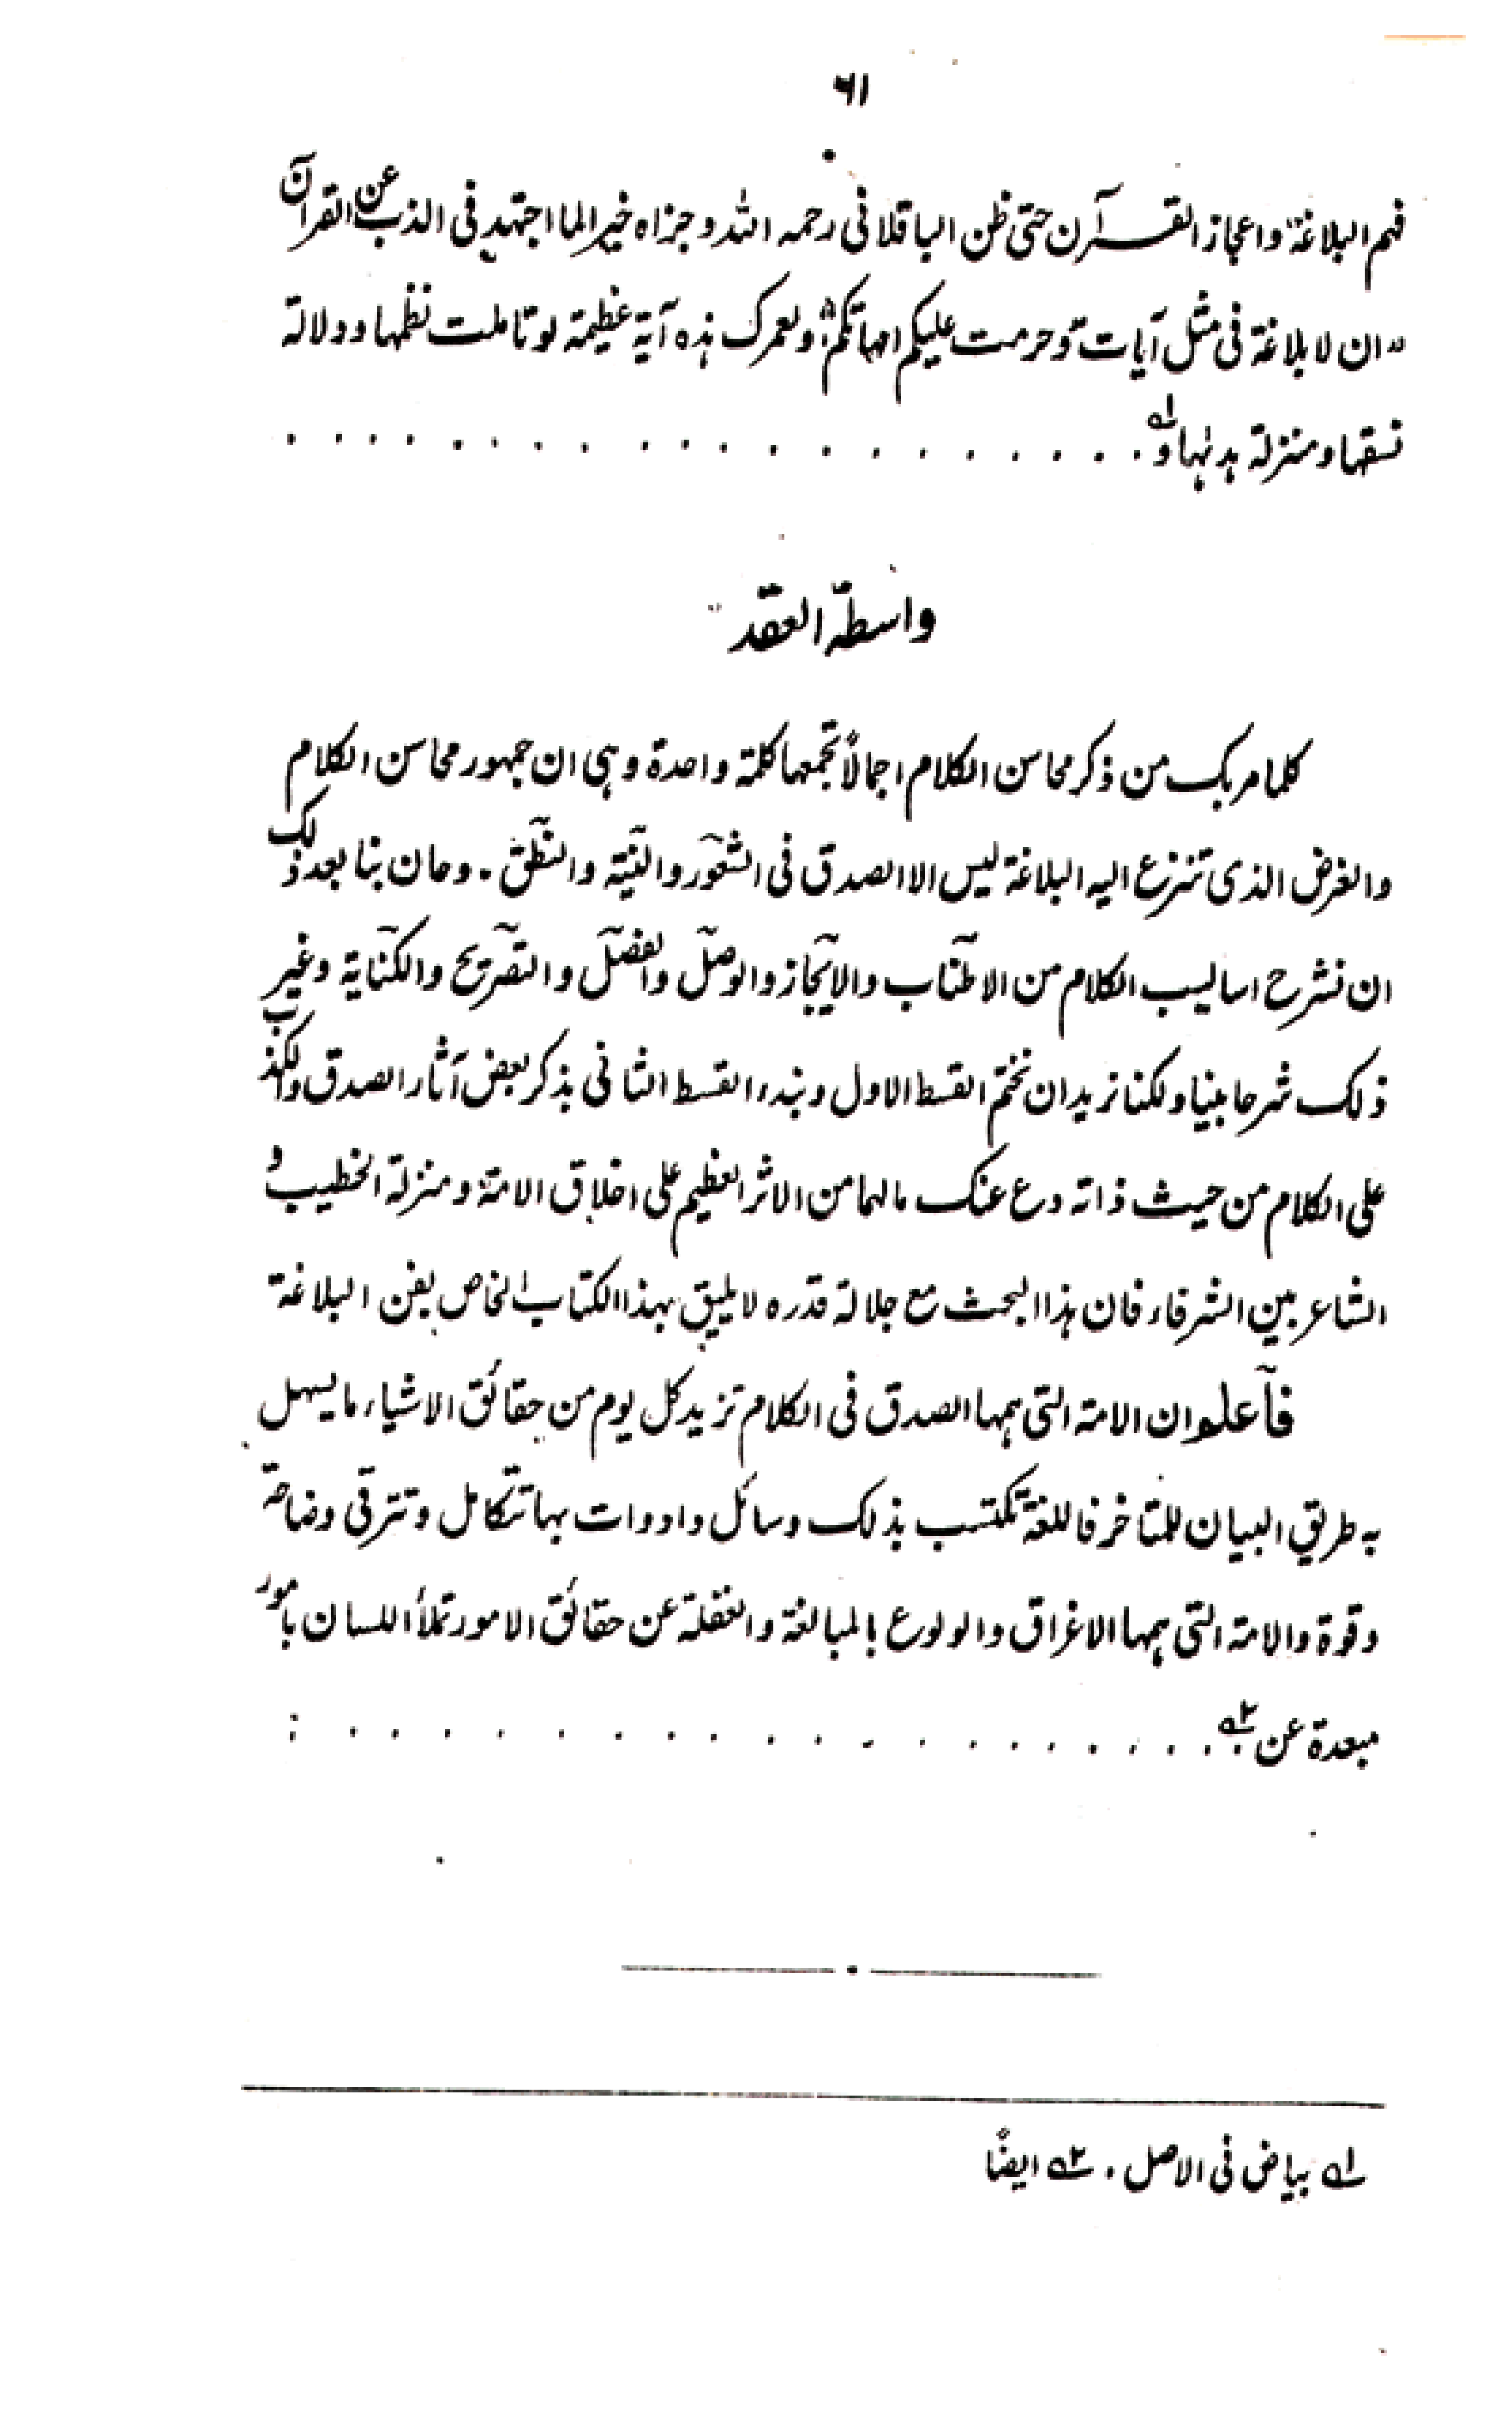 ٦١
فهم البلاغة واعجاز القرآن حتى ظن الباقلانى رحمه الله وجزاه خيرا لما اجتهد فى الذب عن القرآن
"ان لا بلاغة فى مثل آيات "وحرمت عليكم امهاتكم" ولعمرك هذه آية عظيمة لو تاملت نظمها ودلالة
نسقها ومنزلة بدئها و[له] . . . . . . . . . . . . . . . . . .
واسطة العقد
كلما مر بك من ذكر محاسن الكلام اجمالاً تجمعها كلمة واحدة وهى ان جمهور محاسن الكلام
والغرض الذى تنزع اليه البلاغة ليس الا الصدق فى الشعور والنية والنطق . وحان بنا بعد ذلك
ان نشرح اساليب الكلام من الاطناب والايجاز والوصل والفصل والتصريح والكناية وغير
ذلك شرحا بينا ولكنا نريد ان نختم القسط الاول ونبدء القسط الثانى بذكر بعض آثار الصدق والكذب
على الكلام من حيث ذاته ودع عنك مالهما من الاثر العظيم على اخلاق الامة ومنزلة الخطيب و
الشاعر بين الشرفاء فان هذا البحث مع جلالة قدره لا يليق بهذا الكتاب الخاص بفن البلاغة
فاعلموا ان الامة التى همها الصدق فى الكلام تزيد كل يوم من حقائق الاشياء ما يسهل
به طريق البيان للمتاخر فاللغة تكتسب بذلك وسائل وادوات بها تتكامل وتترقى وضاحة
وقوة والامة التى همها الاغراق والولوع بالمبالغة والغفلة عن حقائق الامور تملأ اللسان بامور
مبعدة عن ٢ه . . . . . . . . . . . . . . . . . .
١ه بياض فى الاصل . ٢ه ايضًا